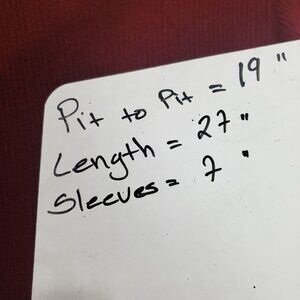 Pit to Pit = 19 "
Length = 27 "
Sleeves = 7 "